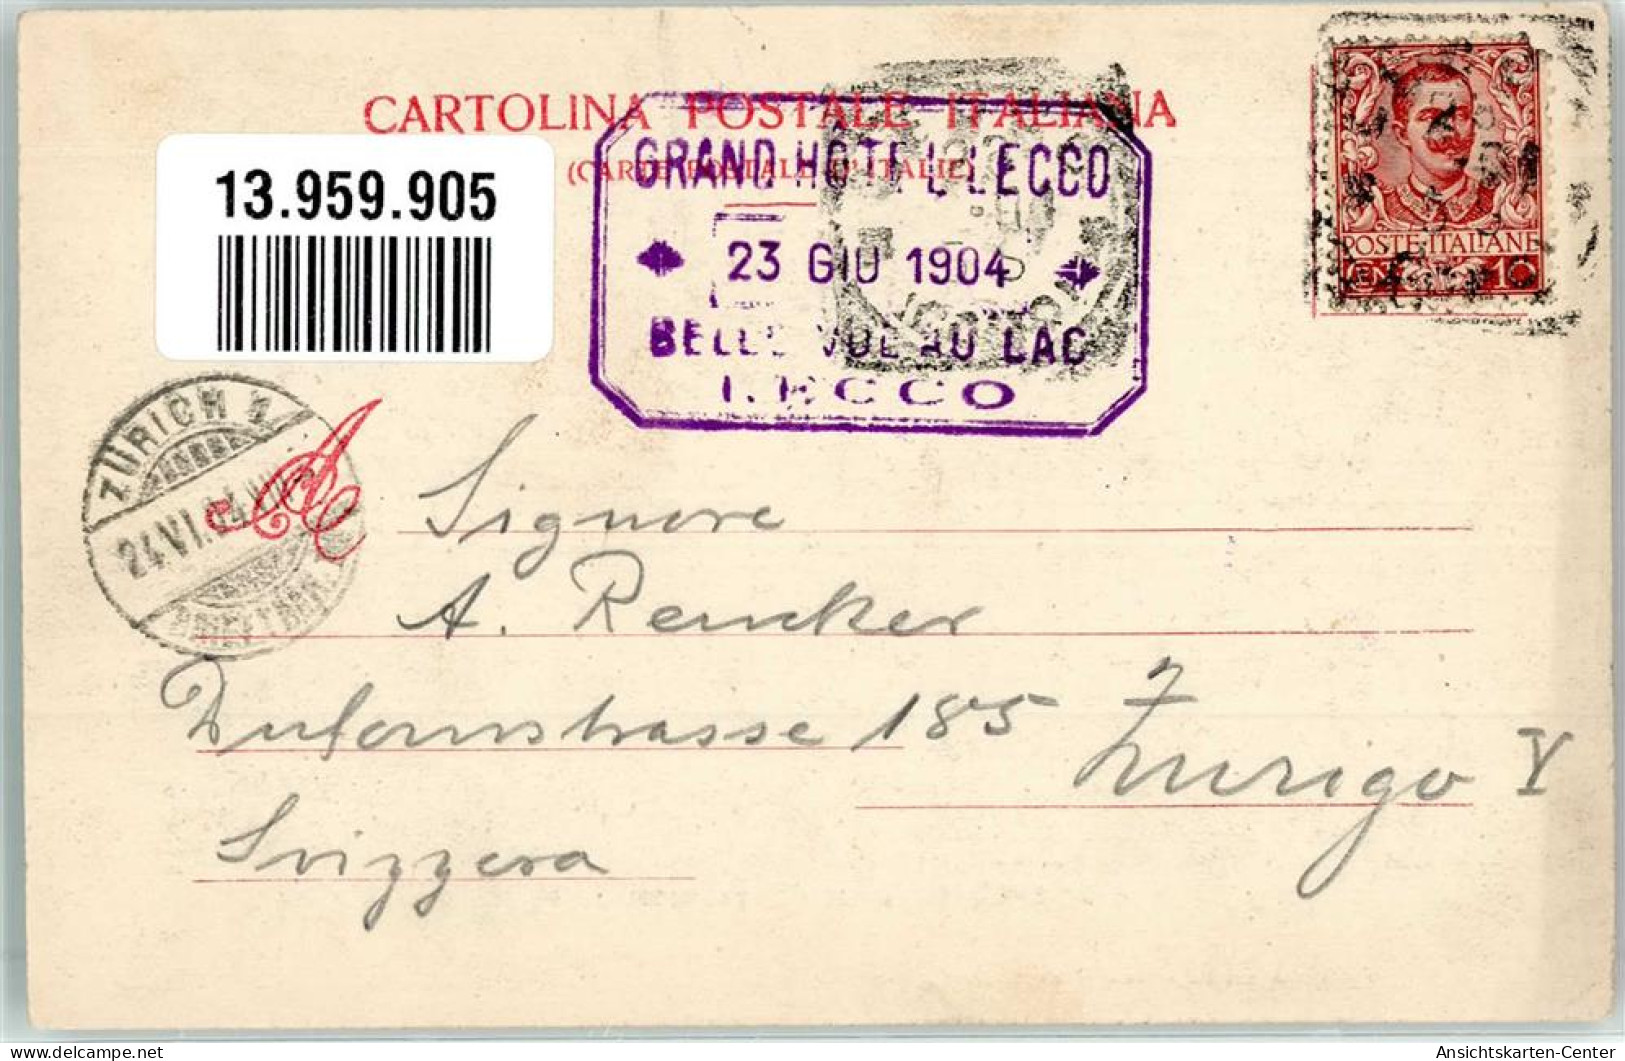 CARTOLINA POSTALE ITALIANA
(CARTE POSTALE D'ITALIE)
13.959.905
GRAND HÔTEL LECCO
23 GIU 1904
BELLE VUE AU LAC
LECCO
POSTE ITALIANE
CEN. 10
ZÜRICH 1
24 VI.04
BRIEFTRÄGER
Signore
A. Rencker
185
Zurigo V
Svizzera
Ansichtskarten-Center
delcampe.net